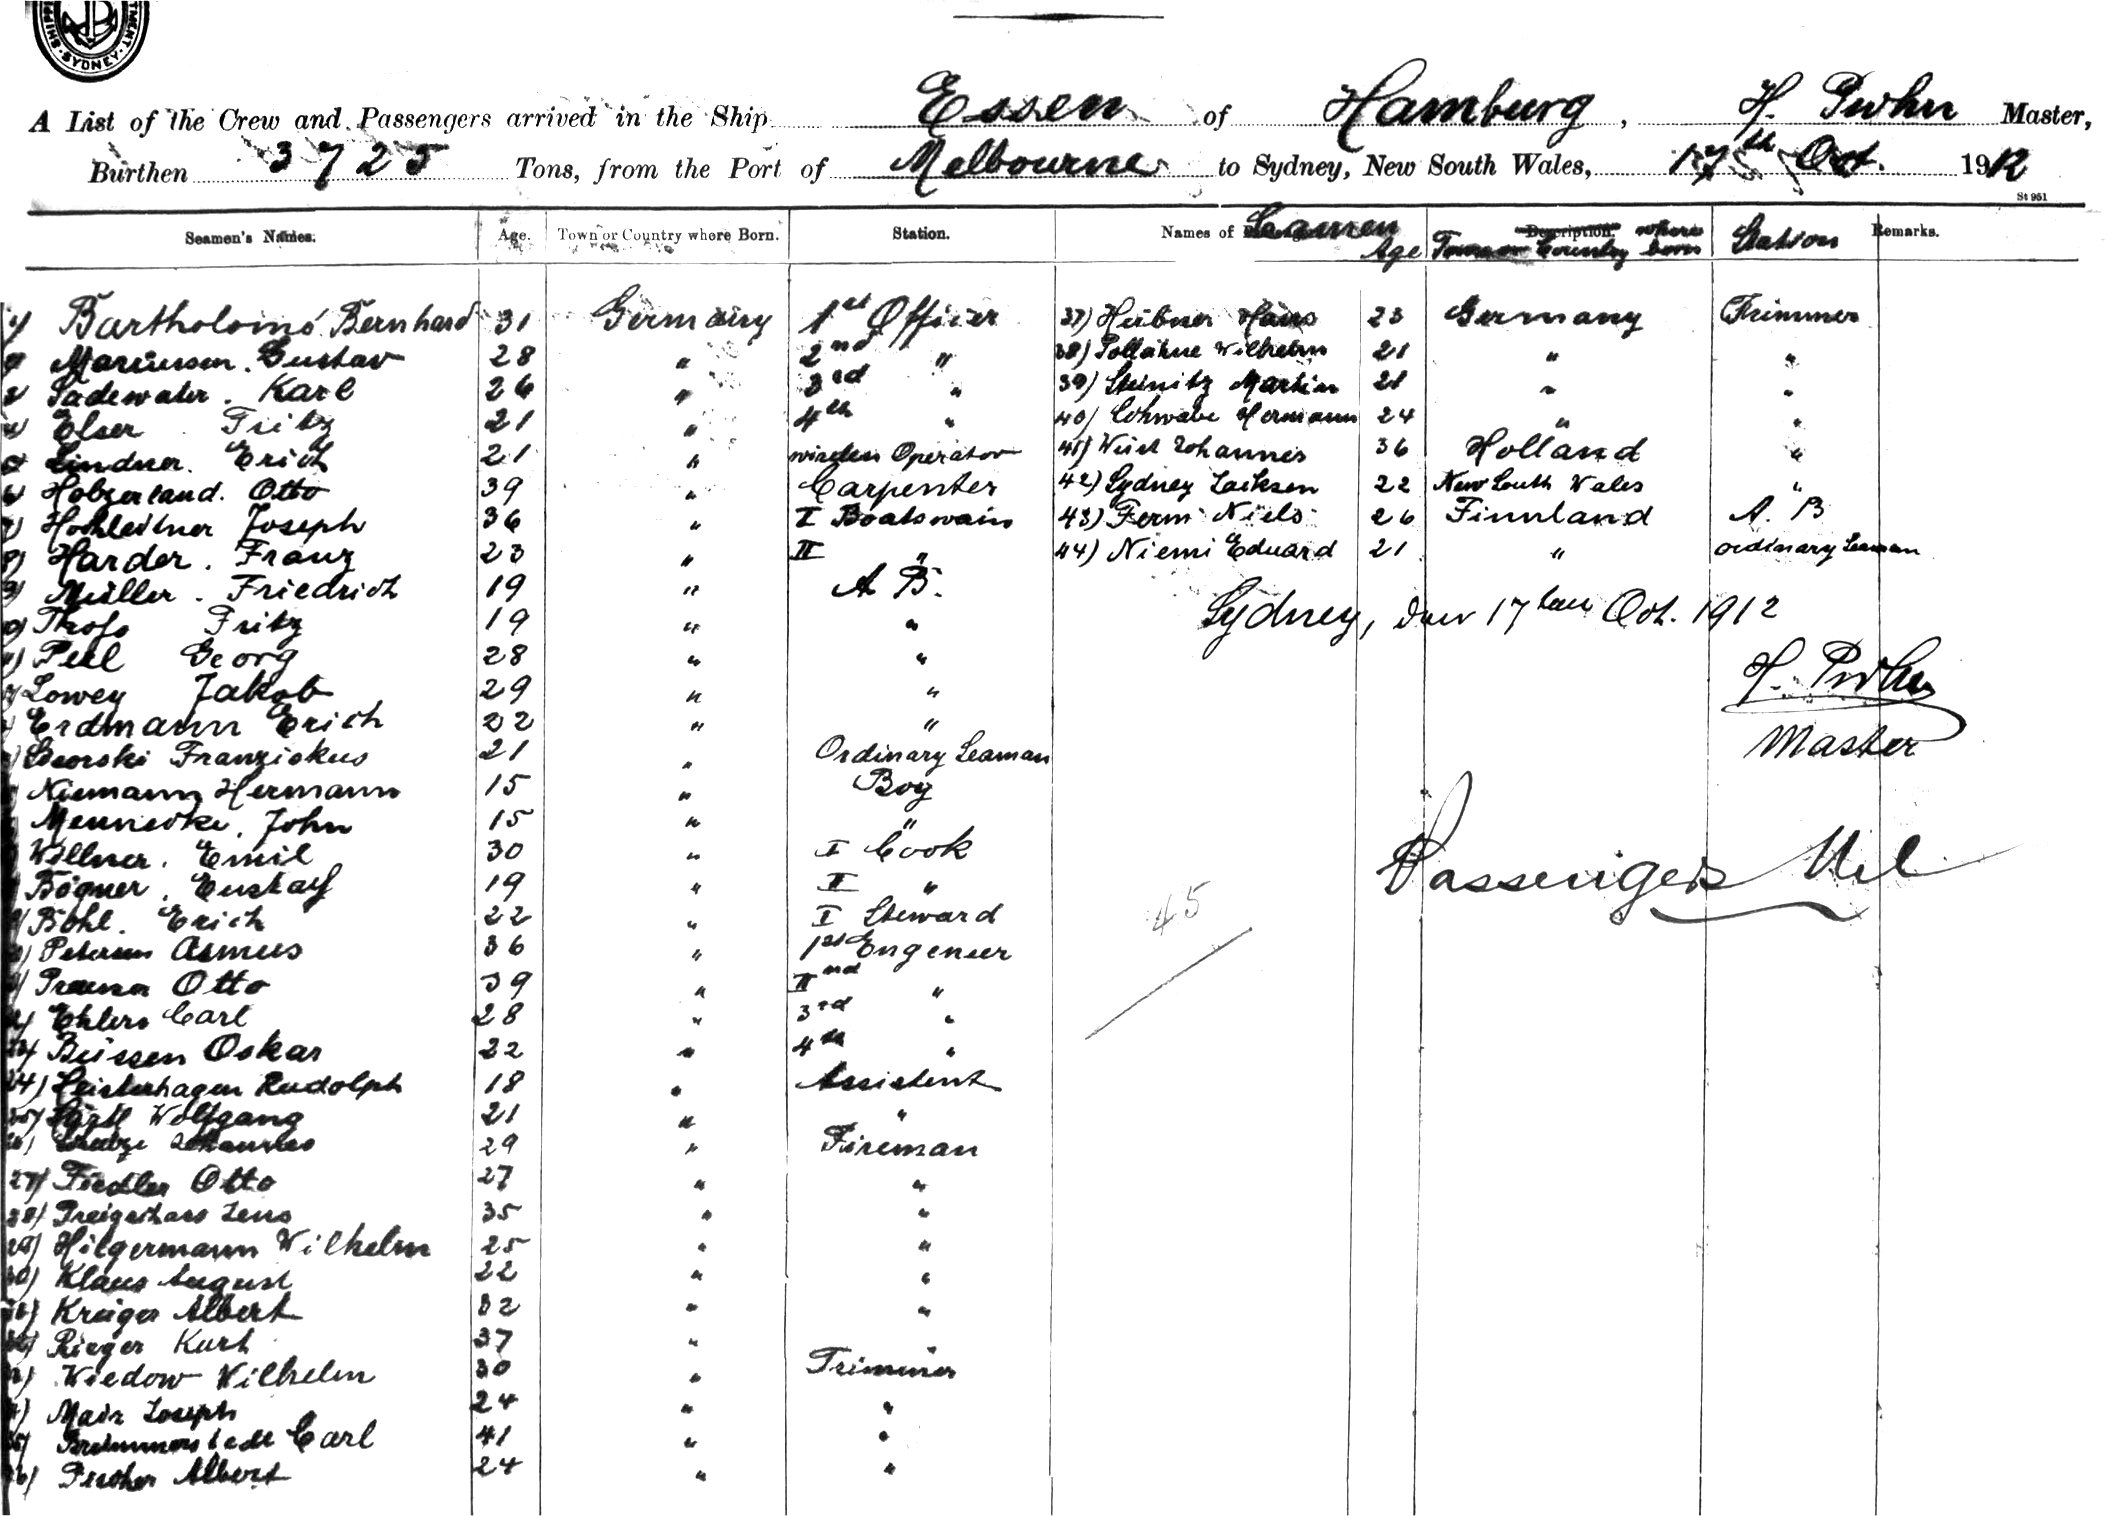 SYDNEY
A List of the Crew and Passengers arrived in the Ship Essen of Hamburg, H. Pruhn Master,
Burthen 3725 Tons, from the Port of Melbourne to Sydney, New South Wales, 17th Oct. 1912
St 951
Seamen's Names. Age. Town or Country where Born. Station. Names of Seamen Age Town or Country where born Station Remarks.
1) Bartholomé Bernhard 31 Germany 1st Officer
Gustav 28 " 2nd "
Sadewater. Karl 26 " 3rd "
Elser Fritz 21 " 4th "
Lindner. Erich 21 " wireless Operator
Holzerland. Otto 39 " Carpenter
7) Hochleitner Joseph 36 " I Boatswain
8) Harder. Franz 23 " II "
9) Müller. Friedrich 19 " A B.
Fritz 19 " "
Georg 28 " "
Lowey Jakob 29 " "
Erdmann Erich 22 " "
Franziskus 21 " Ordinary Seaman
Niemann Hermann 15 " Boy
Mennecke, John 15 " "
Willner. Emil 30 " I Cook
Bögner, Gustav 19 " II "
Böhl. Erich 22 " I Steward
Petersen Asmus 36 " 1st Engeneer
Otto 39 " IInd "
Ehlers Carl 28 " 3rd "
Oskar 22 " 4th "
24) Heisterhagen Rudolph 18 " Assistent
25) Wolfgang 21 " "
26) Johannes 29 " Fireman
27) Fiedler Otto 27 " "
28) Jens 35 " "
29) Hilgermann Wilhelm 25 " "
30) Klaus August 22 " "
31) Krüger Albert 32 " "
32) Rieger Kurt 37 " "
Wiedow Wilhelm 30 " Trimmer
Mair Joseph 24 " "
Carl 41 " "
36) Fischer Albert 24 " "
37) Hübner Hans 23 Germany Trimmer
38) Wilhelm 21 " "
39) Steinitz Martin 21 " "
40) Schwabe Hermann 24 " "
41) Johannes 36 Holland "
42) Sydney Jackson 22 New South Wales "
43) Ferm Niels 26 Finnland A. B
44) Niemi Eduard 21 " ordinary Seaman
Sydney, den 17ten Oct. 1912
H. Pruhn
Master
Passengers Nil
45